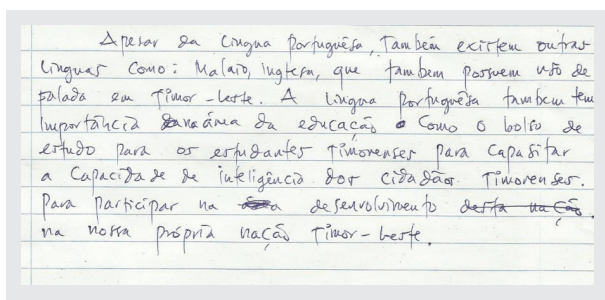 Apesar da Língua Portuguêsa, Também existem outras
Línguas como: Malaio, Inglesa, que também possuem uso de
falada em Timor-Leste. A língua Portuguêsa também tem
Importância na área da educação Como o bolso de
estudo Para os estudantes Timorenses Para Capasitar
a Capacidade de inteligência dos cidadãos Timorenses.
Para Participar na desenvolvimento desta nação
na nossa própria nação Timor-Leste.